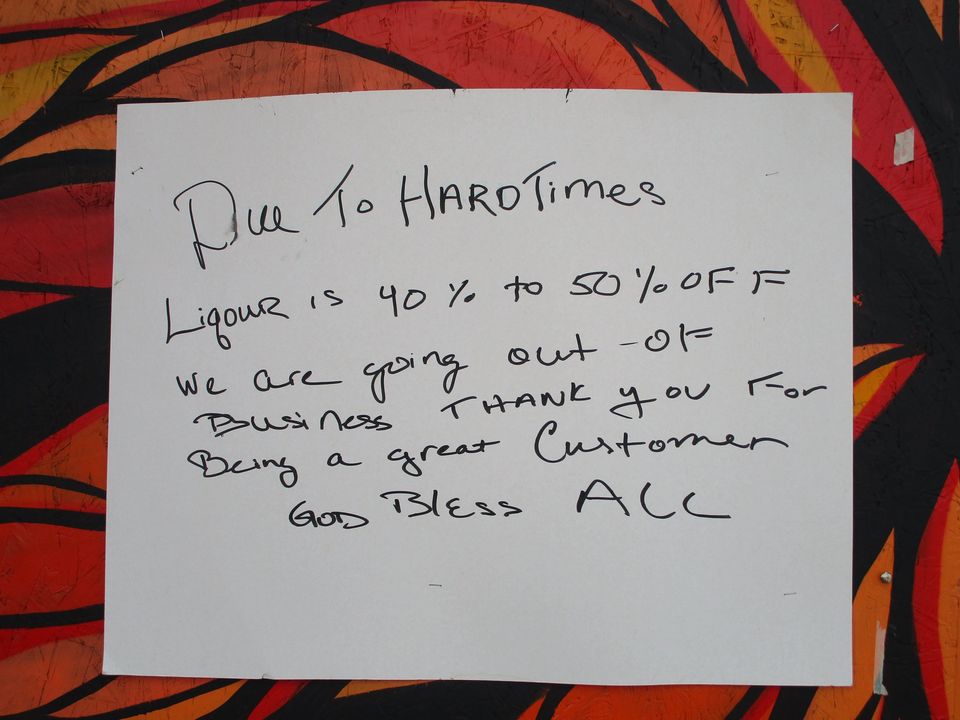 Due To HARDTimes
Liqour is 40% to 50% OFF
We are going out-OF
Business THANK you For
Being a great Customer
GOD Bless ALL